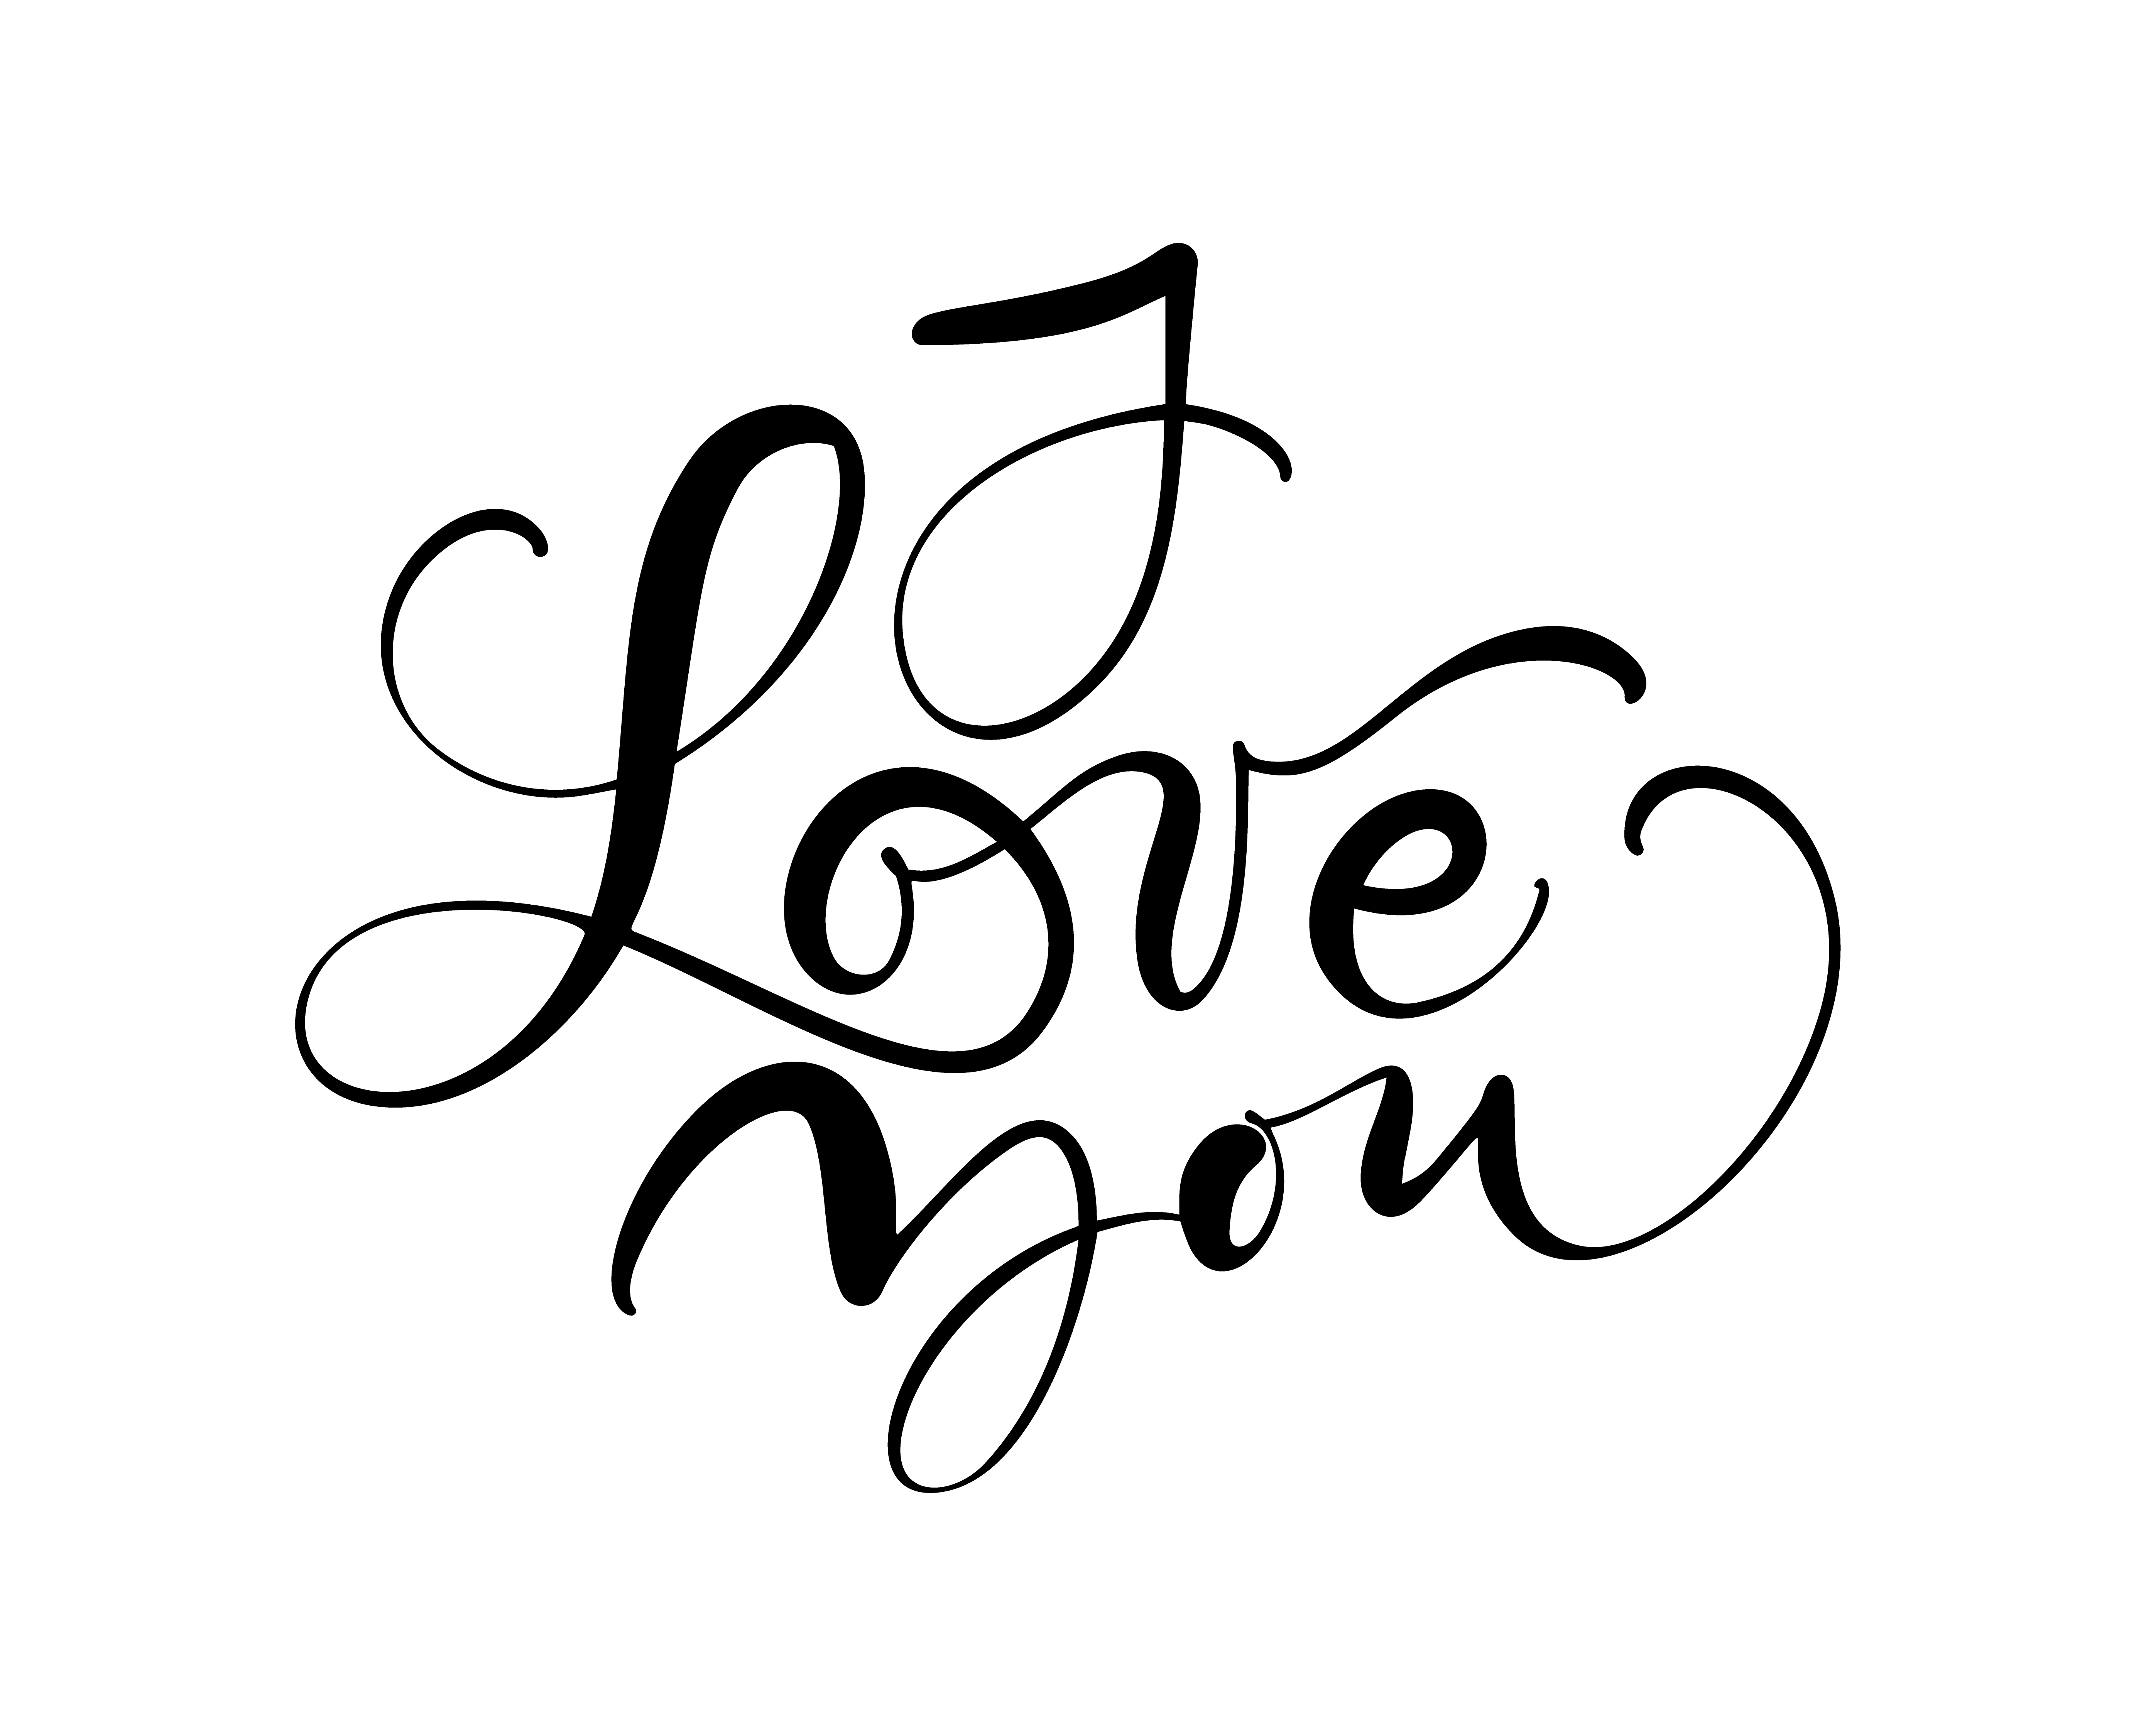 I
Love
you